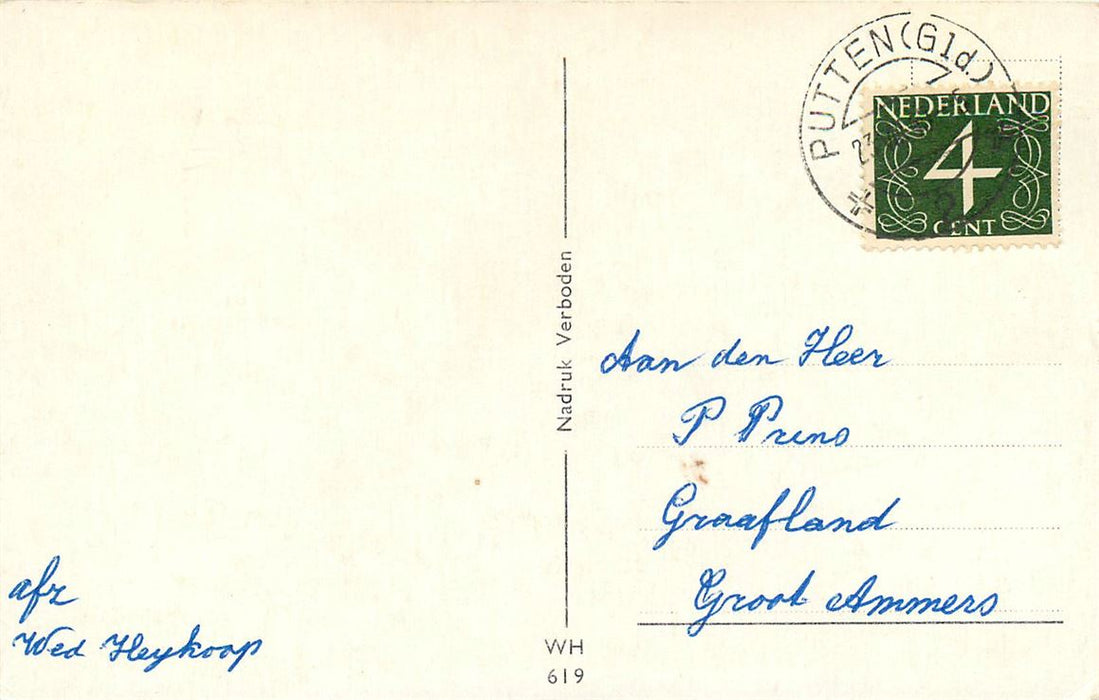 PUTTEN (Gld.)
NEDERLAND
4
CENT
Nadruk Verboden
Aan den Heer
P Prins
Graafland
Groot Ammers
afz
Wed Heykoop
WH
619